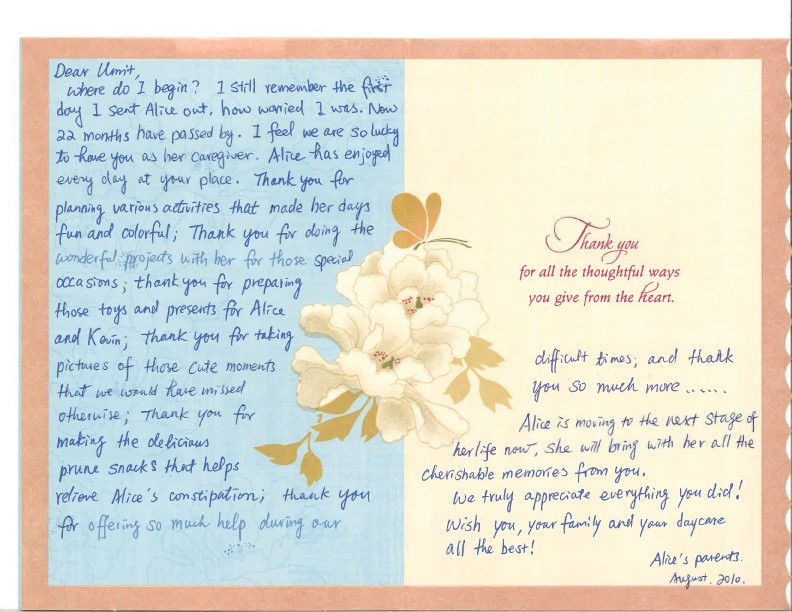 Dear Umit,
where do I begin? I still remember the first
day I sent Alice out, how worried I was. Now
22 months have passed by. I feel we are so lucky
to have you as her caregiver. Alice has enjoyed
every day at your place. Thank you for
planning various activities that made her days
fun and colorful; Thank you for doing the
wonderful projects with her for those special
occasions; thank you for preparing
those toys and presents for Alice
and Kevin; thank you for taking
pictures of those cute moments
that we would have missed
otherwise; Thank you for
making the delicious
prune snacks that helps
relieve Alice's constipation; thank you
for offering so much help during our
Thank you
for all the thoughtful ways
you give from the heart.
difficult times; and thank
you so much more ......
Alice is moving to the next stage of
her life now, she will bring with her all the
cherishable memories from you.
We truly appreciate everything you did!
Wish you, your family and your daycare
all the best!
Alice's parents.
August. 2010.